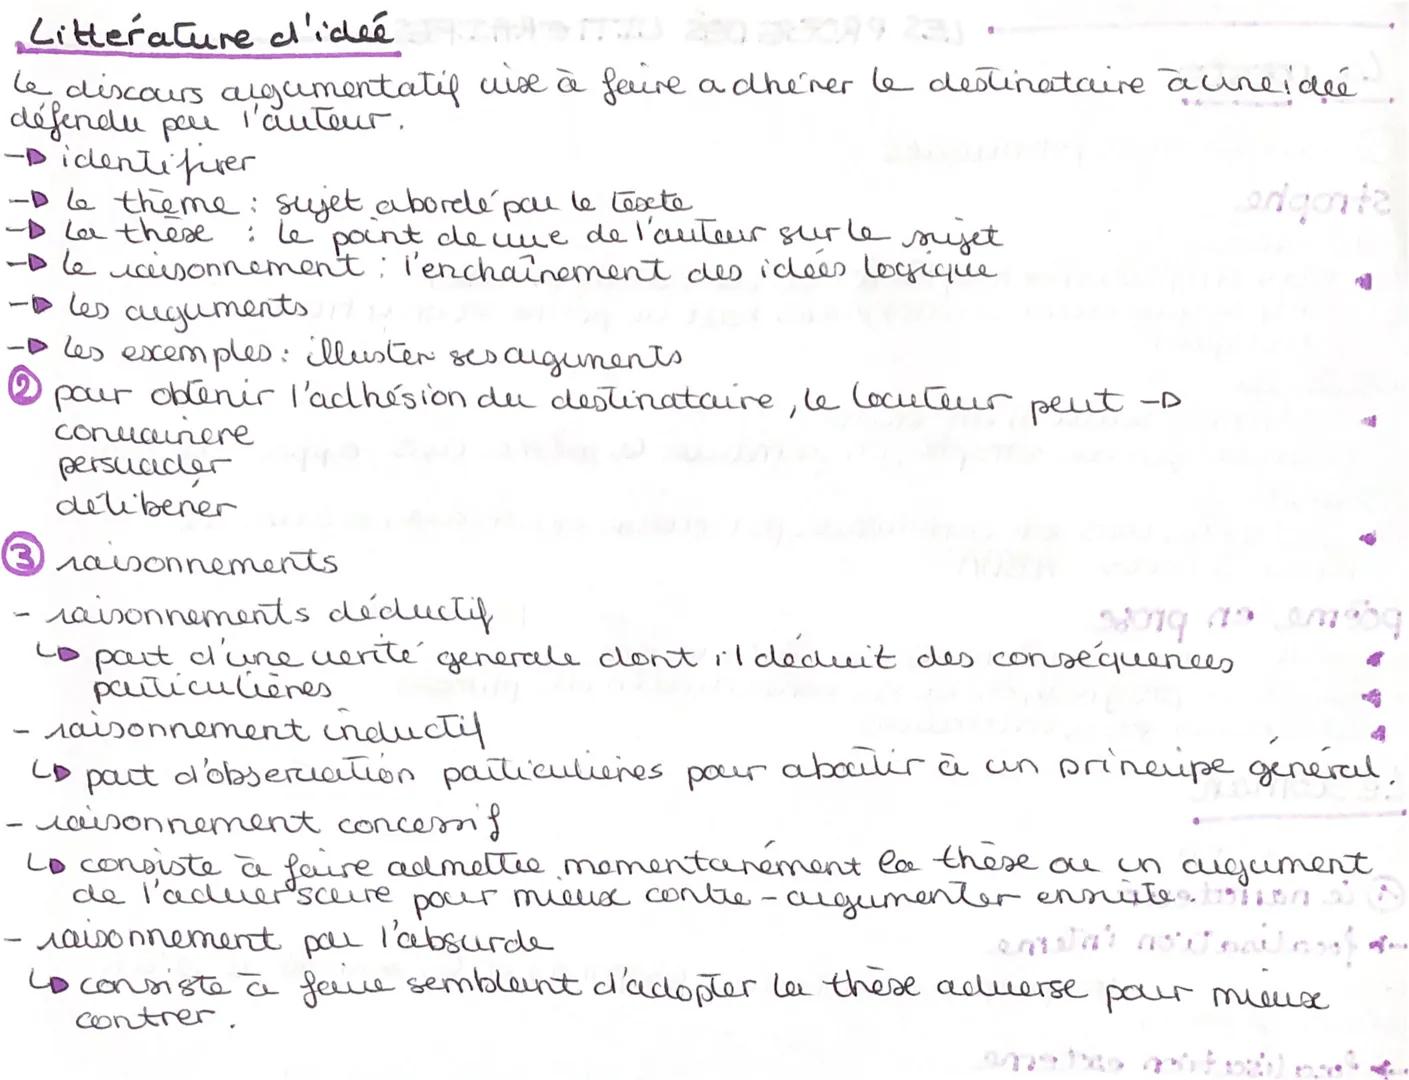 Littérature d'ideé
le discours argumentatif vise à faire adhérer le destinataire à une ideé
défendu par l'auteur.
→ identifier
→ le thème : sujet abordé par le texte
→ la thèse : le point de vue de l'auteur sur le sujet
→ le raisonnement : l'enchaînement des idées logique
→ les arguments
→ les exemples : illuster ses arguments
② pour obtenir l'adhésion du destinataire, le locuteur peut →
convaincre
persuader
délibérer
③ raisonnements
- raisonnements déductif
↳ part d'une verité generale dont il déduit des conséquences
particulières
- raisonnement inductif
↳ part d'observation particulières pour aboutir à un principe général.
- raisonnement concessif
↳ consiste à faire admettre momentanément la thèse ou un argument
de l'adversaire pour mieux contre-argumenter ensuite.
- raisonnement par l'absurde
↳ consiste à faire semblant d'adopter la thèse adverse pour mieux
contrer.
strophe
poème en prose
focalisation interne
focalisation externe